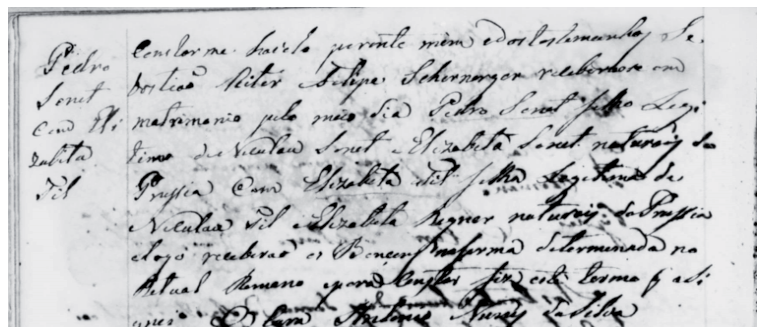 Pedro
Sonet
Com Eli
zabita
Til
Conforme Sacelo perante mim e dos testemunhas Se
bastiao Felipe receberaose em
matrimonio pelo meio dia Pedro Sonet filho Legi
timo de Niculau Sonet e Elizabeta Sonet naturais da
Prussia Com Elizabeta Til filha Legitima de
Niculau Til e Elizabeta naturais da Prussia
e logo receberaõ as Bencens na forma determinada no
Retual Romano e para Constar fiz este termo q asi
gnei O Cura Antonio Nunes da Silva